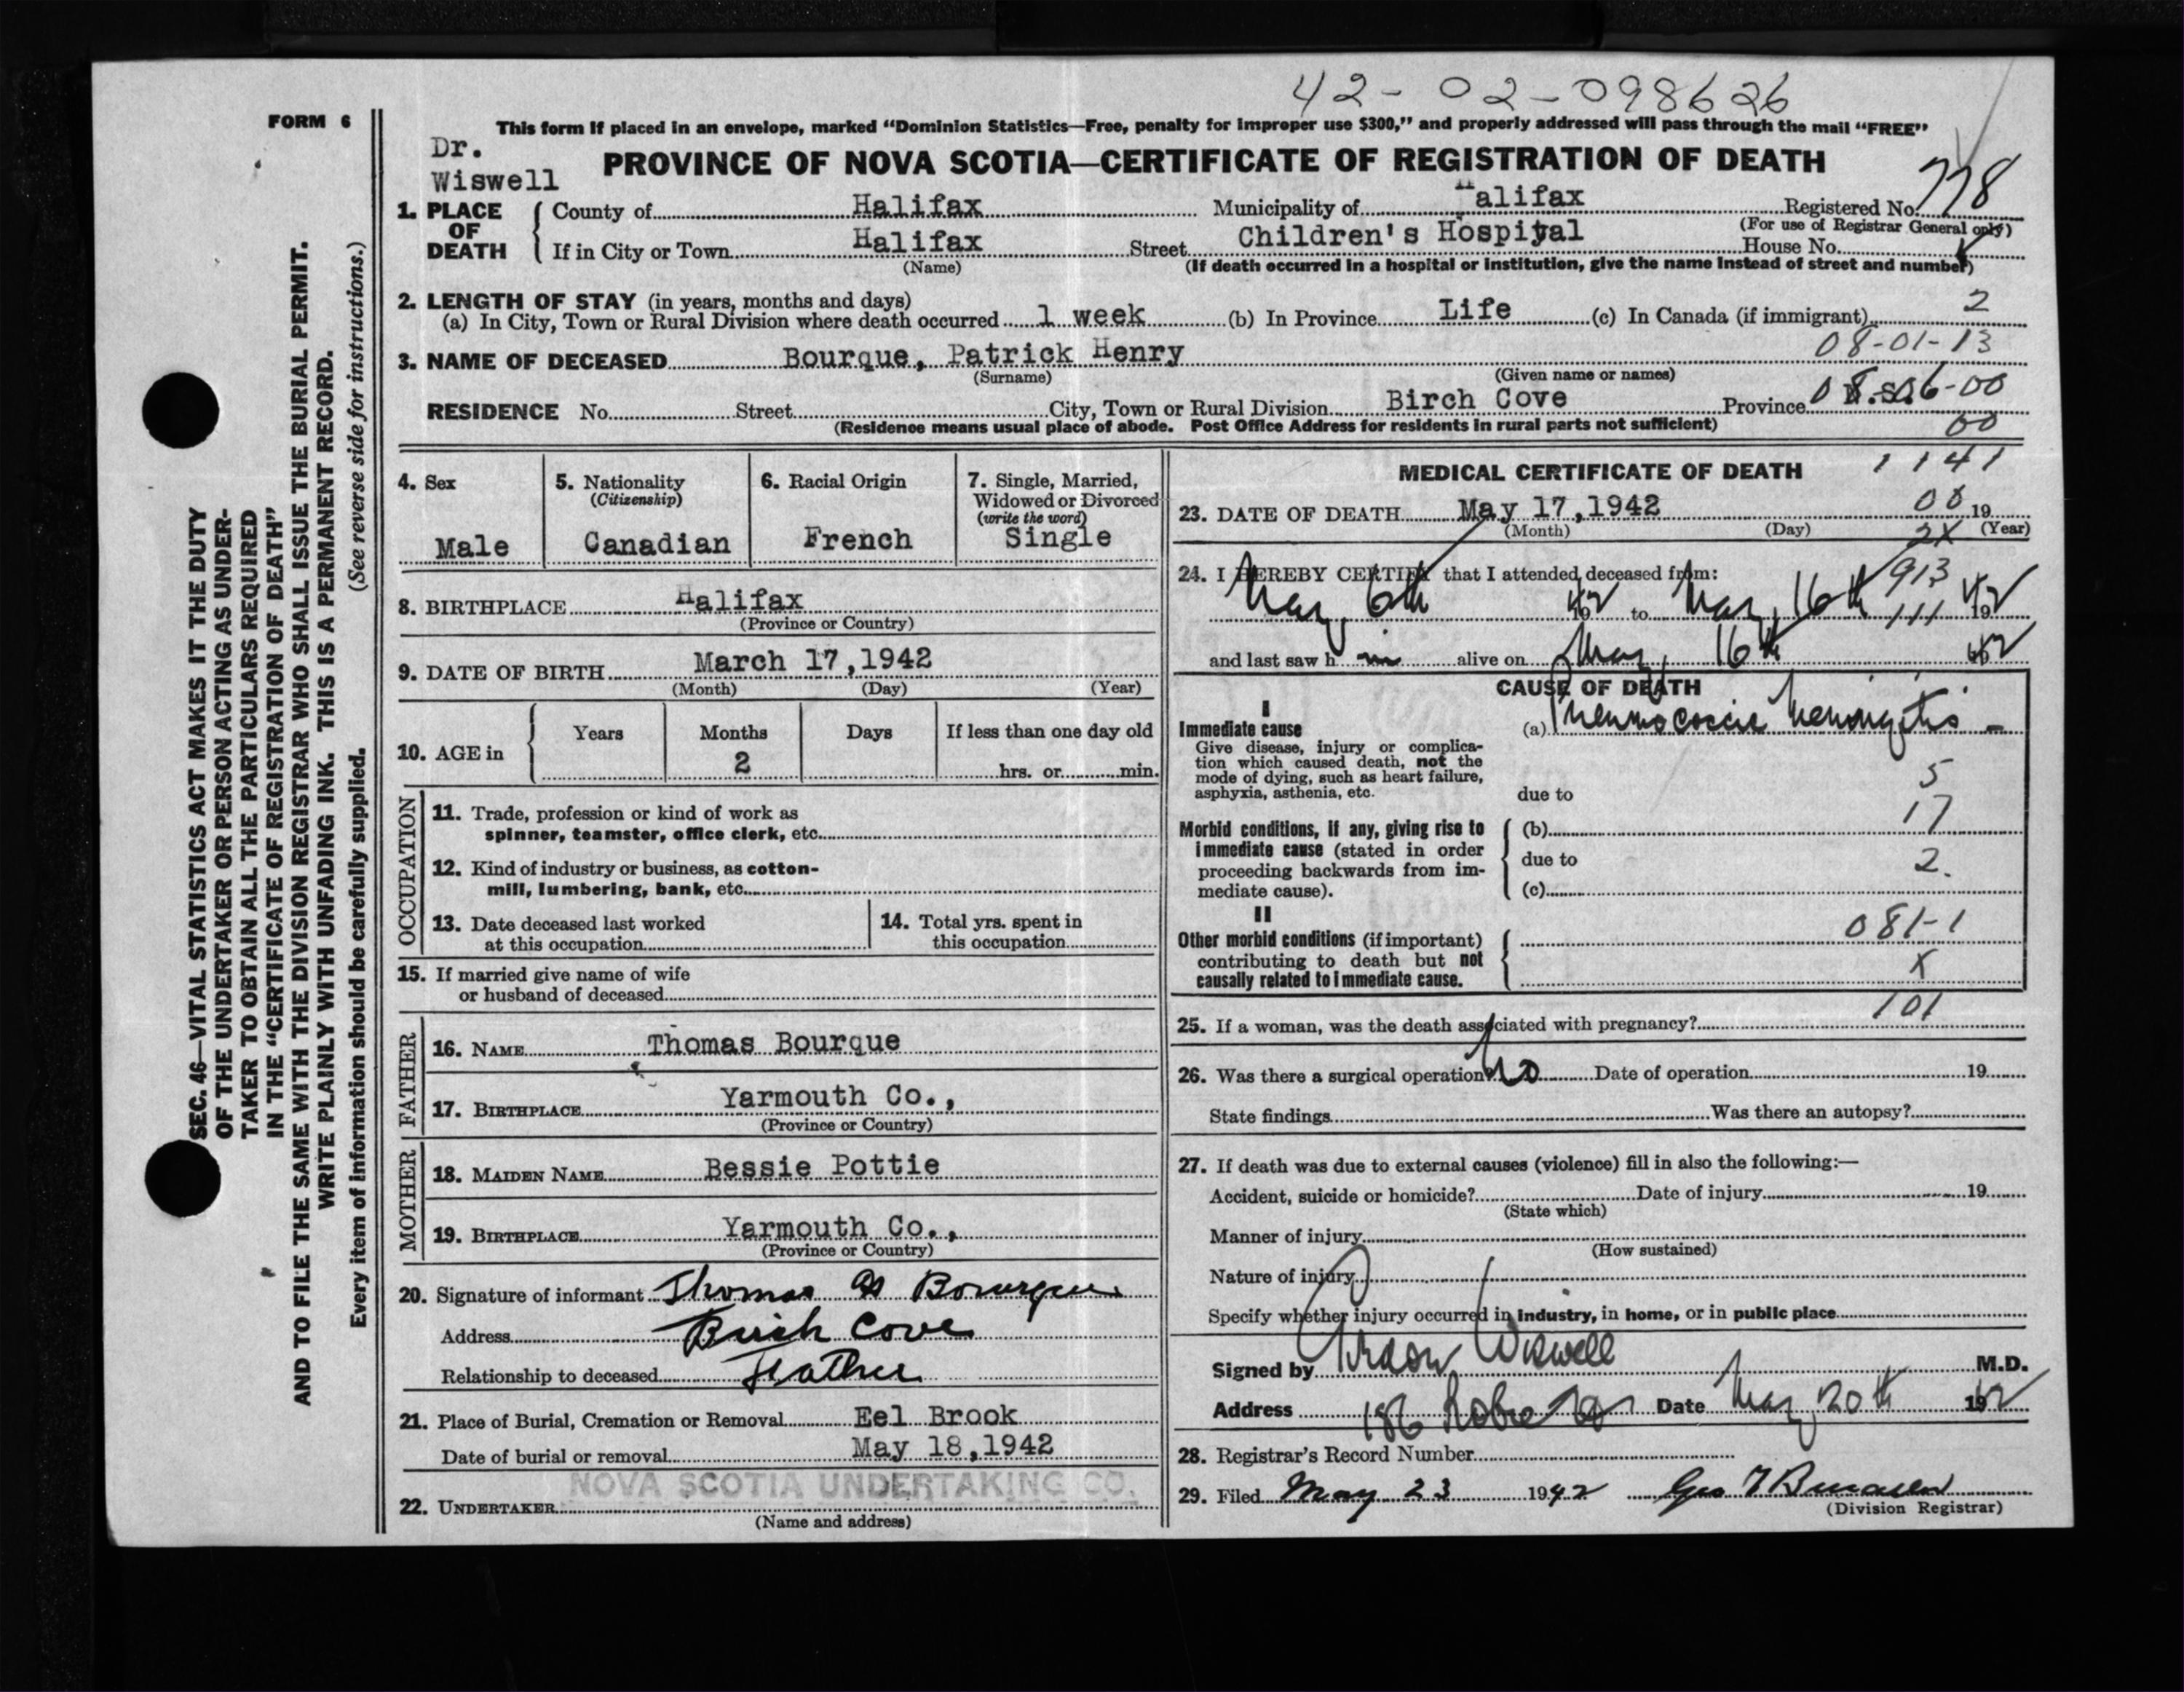 42-02-098626
FORM 6
This form if placed in an envelope, marked “Dominion Statistics—Free, penalty for improper use $300,” and properly addressed will pass through the mail “FREE”
Dr.
Wiswell
PROVINCE OF NOVA SCOTIA—CERTIFICATE OF REGISTRATION OF DEATH
778
1. PLACE OF DEATH
County of Halifax Municipality of Halifax Registered No.
(For use of Registrar General only)
If in City or Town Halifax Street Children's Hospital House No.
(Name) (If death occurred in a hospital or institution, give the name instead of street and number)
2. LENGTH OF STAY (in years, months and days)
(a) In City, Town or Rural Division where death occurred 1 week (b) In Province Life (c) In Canada (if immigrant) 2
08-01-13
3. NAME OF DECEASED Bourque, Patrick Henry
(Surname) (Given name or names)
RESIDENCE No. Street City, Town or Rural Division Birch Cove Province N.S. 06-00
(Residence means usual place of abode. Post Office Address for residents in rural parts not sufficient)
00
4. Sex
Male
5. Nationality
(Citizenship)
Canadian
6. Racial Origin
French
7. Single, Married,
Widowed or Divorced
(write the word)
Single
8. BIRTHPLACE Halifax
(Province or Country)
9. DATE OF BIRTH March 17,1942
(Month) (Day) (Year)
10. AGE in
Years Months Days If less than one day old
2 hrs. or min.
OCCUPATION
11. Trade, profession or kind of work as
spinner, teamster, office clerk, etc.
12. Kind of industry or business, as cotton-
mill, lumbering, bank, etc.
13. Date deceased last worked
at this occupation
14. Total yrs. spent in
this occupation
15. If married give name of wife
or husband of deceased
FATHER
16. NAME Thomas Bourque
17. BIRTHPLACE Yarmouth Co.,
(Province or Country)
MOTHER
18. MAIDEN NAME Bessie Pottie
19. BIRTHPLACE Yarmouth Co.,
(Province or Country)
20. Signature of informant Thomas Bourque
Address Birch Cove
Relationship to deceased Father
21. Place of Burial, Cremation or Removal Eel Brook
Date of burial or removal May 18,1942
NOVA SCOTIA UNDERTAKING CO.
22. UNDERTAKER
(Name and address)
MEDICAL CERTIFICATE OF DEATH 1141
23. DATE OF DEATH May 17,1942 19
(Month) (Day) (Year)
2X
24. I HEREBY CERTIFY that I attended deceased from: 913
May 6th 1942 to May 16th 1942
111
and last saw h im alive on May 16th 1942
CAUSE OF DEATH
I
Immediate cause
Give disease, injury or complica-
tion which caused death, not the
mode of dying, such as heart failure,
asphyxia, asthenia, etc.
(a) Pneumococcic Meningitis
5
due to
17
Morbid conditions, if any, giving rise to
immediate cause (stated in order
proceeding backwards from im-
mediate cause).
(b)
due to
2.
(c)
II
Other morbid conditions (if important)
contributing to death but not
causally related to immediate cause.
081-1
X
101
25. If a woman, was the death associated with pregnancy?
26. Was there a surgical operation? No Date of operation 19
State findings Was there an autopsy?
27. If death was due to external causes (violence) fill in also the following:—
Accident, suicide or homicide? Date of injury 19
(State which)
Manner of injury
(How sustained)
Nature of injury
Specify whether injury occurred in industry, in home, or in public place
Signed by Wiswell M.D.
Address 186 Robie Date May 20th 1942
28. Registrar's Record Number
29. Filed May 23 1942
(Division Registrar)
SEC. 46—VITAL STATISTICS ACT MAKES IT THE DUTY
OF THE UNDERTAKER OR PERSON ACTING AS UNDER-
TAKER TO OBTAIN ALL THE PARTICULARS REQUIRED
IN THE “CERTIFICATE OF REGISTRATION OF DEATH”
AND TO FILE THE SAME WITH THE DIVISION REGISTRAR WHO SHALL ISSUE THE BURIAL PERMIT.
WRITE PLAINLY WITH UNFADING INK. THIS IS A PERMANENT RECORD.
Every item of information should be carefully supplied. (See reverse side for instructions.)